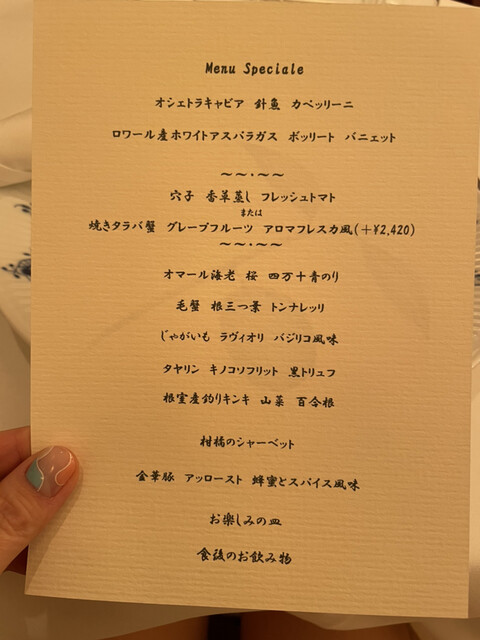 Menu Speciale
オシェトラキャビア 針魚 カペッリーニ
ロワール産ホワイトアスパラガス ボッリート バニェット
～～・～～
穴子 香草蒸し フレッシュトマト
または
焼きタラバ蟹 グレープフルーツ アロマフレスカ風(＋¥2,420)
～～・～～
オマール海老 桜 四万十青のり
毛蟹 根三つ葉 トンナレッリ
じゃがいも ラヴィオリ バジリコ風味
タヤリン キノコソフリット 黒トリュフ
根室産釣りキンキ 山菜 百合根
柑橘のシャーベット
金華豚 アッロースト 蜂蜜とスパイス風味
お楽しみの皿
食後のお飲み物